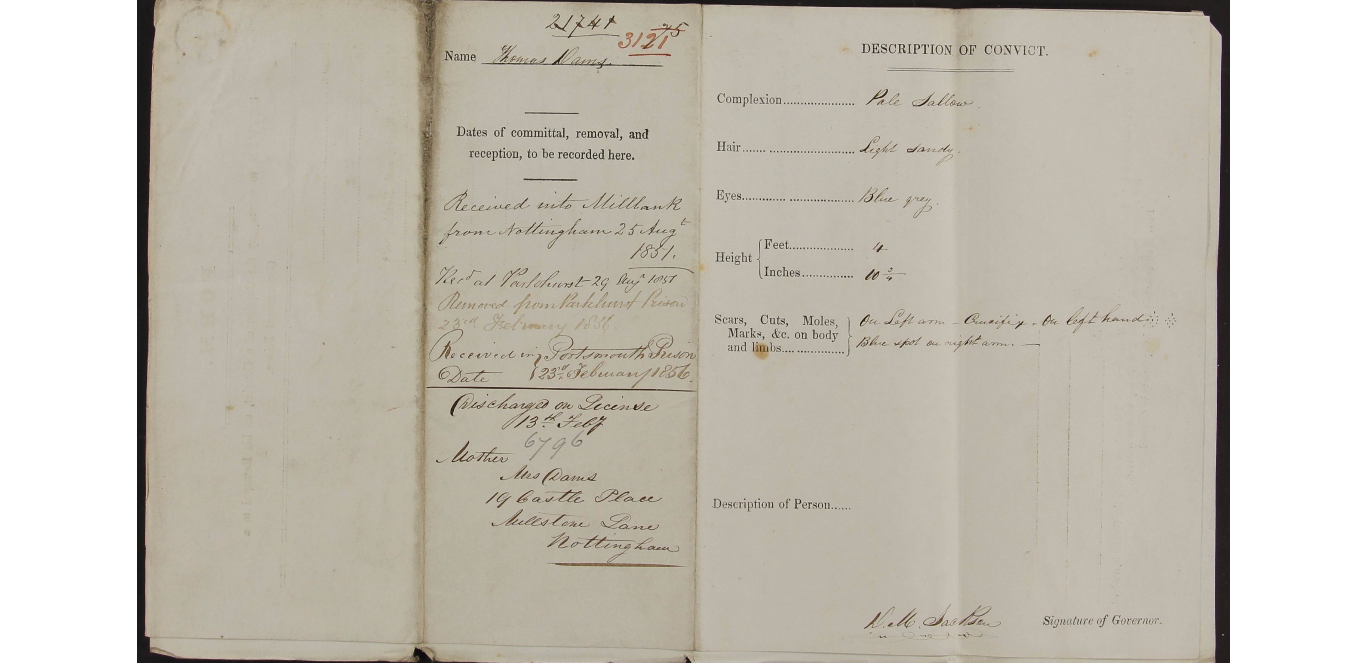 21741
3121
Name Thomas Dams.
Dates of committal, removal, and
reception, to be recorded here.
Received into Millbank
from Nottingham 25 Augt
1851.
Recd at Parkhurst 29 Augt 1851
Removed from Parkhurst Prison
23rd February 1856
Received in Portsmouth Prison
Date 23rd February 1856.
Discharged on License
13th Feby
6796
Mother
Mrs Dams
19 Castle Place
Millstone Lane
Nottingham
DESCRIPTION OF CONVICT.
Complexion..................... Pale Sallow.
Hair....... ...................... Light Sandy.
Eyes............. .................... Blue grey.
Height Feet................... 4
Inches............... 10 3/4
Scars, Cuts, Moles, On Left arm - Crucifix - On left hand
Marks, &c. on body Blue spot on right arm. —
and limbs.... ..............
Description of Person......
Jackson Signature of Governor.